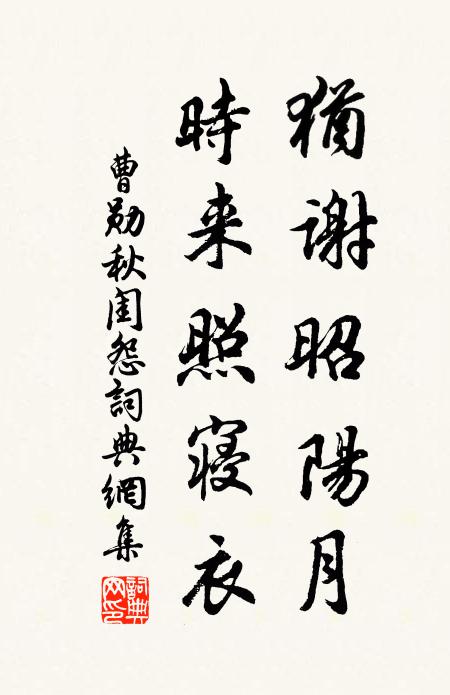 猶謝昭陽月
時来照寝衣
曹勛秋閨怨詞典網集
詞典網印